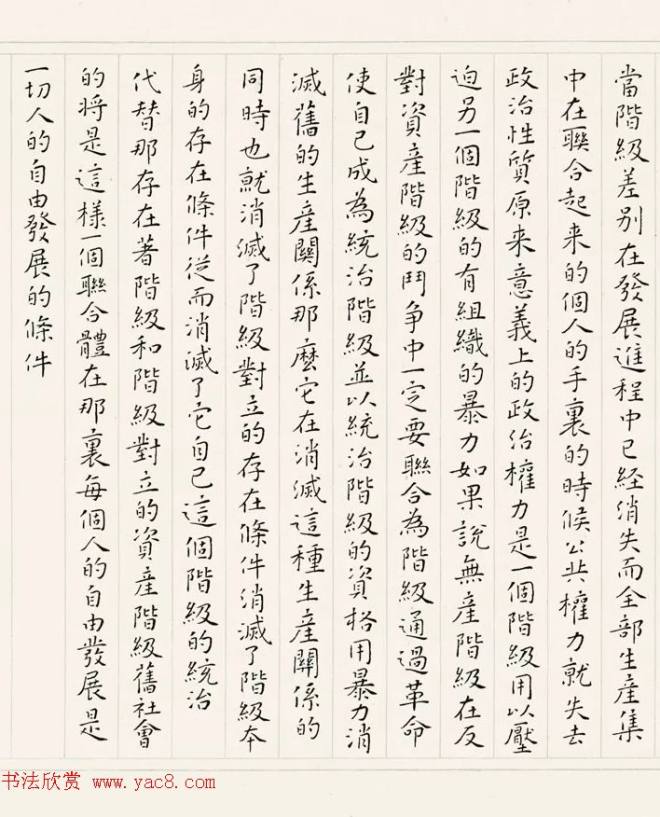 當階級差别在發展進程中已经消失而全部生産集
中在聯合起来的個人的手裏的時候公共權力就失去
政治性質原来意義上的政治權力是一個階級用以壓
迫另一個階級的有組織的暴力如果説無産階級在反
對資産階級的鬥争中一定要聯合為階級通過革命
使自己成為統治階級並以統治階級的資格用暴力消
滅舊的生産關係那麼它在消滅這種生産關係的
同時也就消滅了階級對立的存在條件消滅了階級本
身的存在條件從而消滅了它自己這個階級的統治
代替那存在著階級和階級對立的資産階級舊社會
的将是這樣一個聯合體在那裏每個人的自由發展是
一切人的自由發展的條件
书法欣赏 www.yac8.com